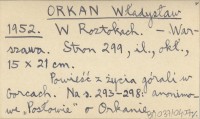 ORKAN Władysław
1952. W Roztokach. – War-
szawa. Stron 299, il., okł.,
15 x 21 cm.
Powieść z życia górali w
Gorcach. Na s. 293-298: anonimo-
we „Posłowie” o Orkanie.